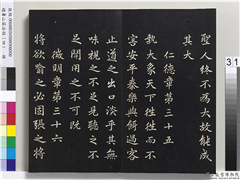 聖人終不為大故能成
其大
仁德章第三十五
執大象天下往往而不
害安平泰樂與餌過客
止道之出口淡乎其無
味視之不足見聽之不
足聞用之不可既
微明章第三十六
將欲歙之必固張之將
31